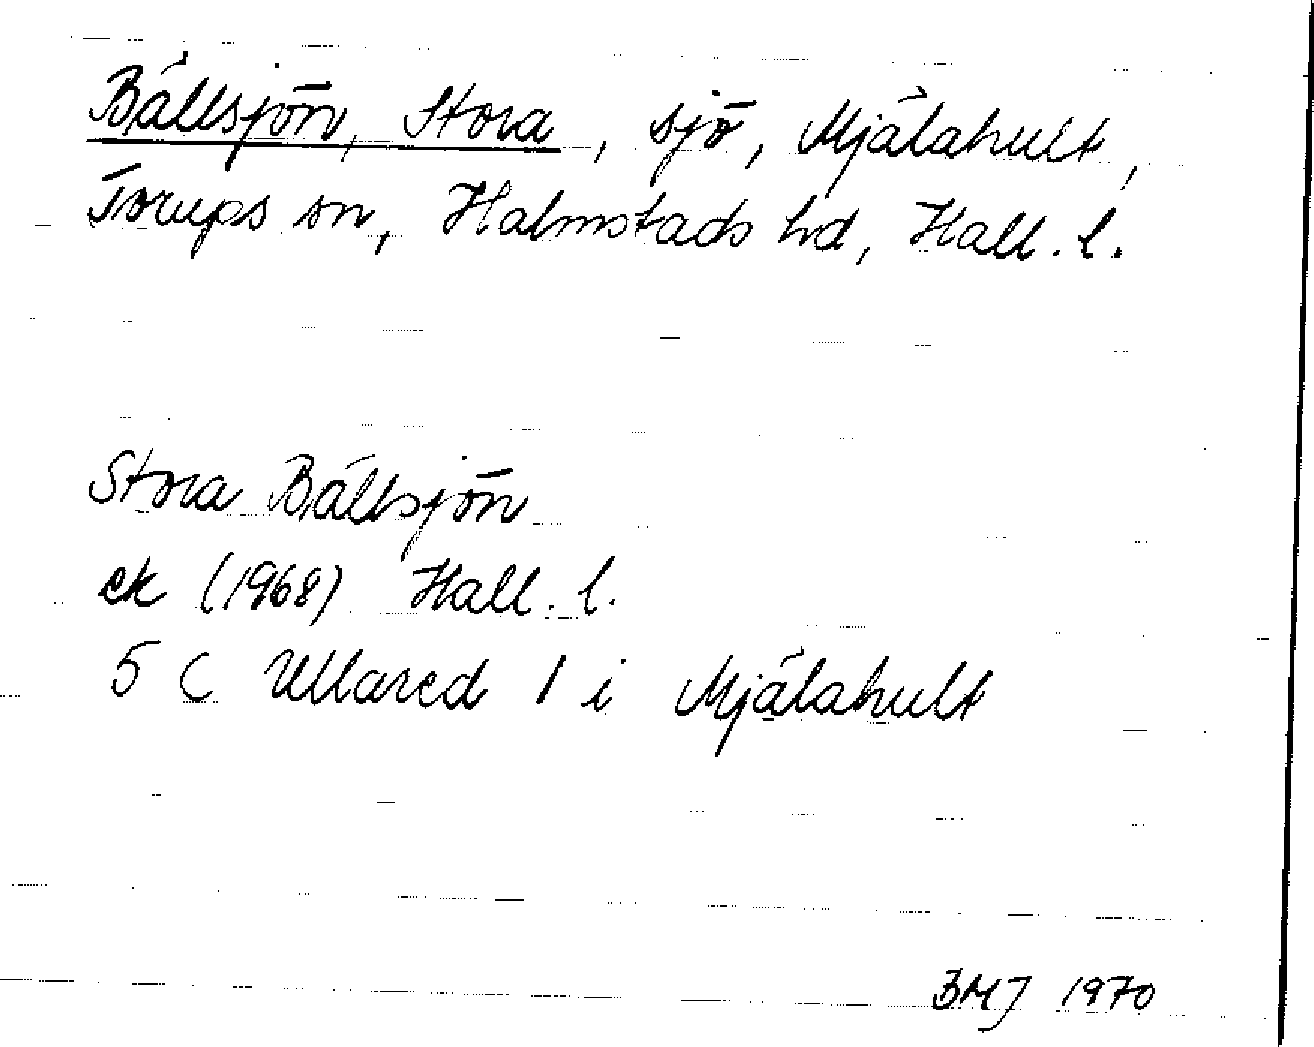 Bällsjön, Stora, sjö, Mjälahult,
Torups sn, Halmstads hd, Hall. l.
Stora Bällsjön
ek (1968) Hall. l.
5 C Ullared 1 i Mjälahult
BMJ 1970